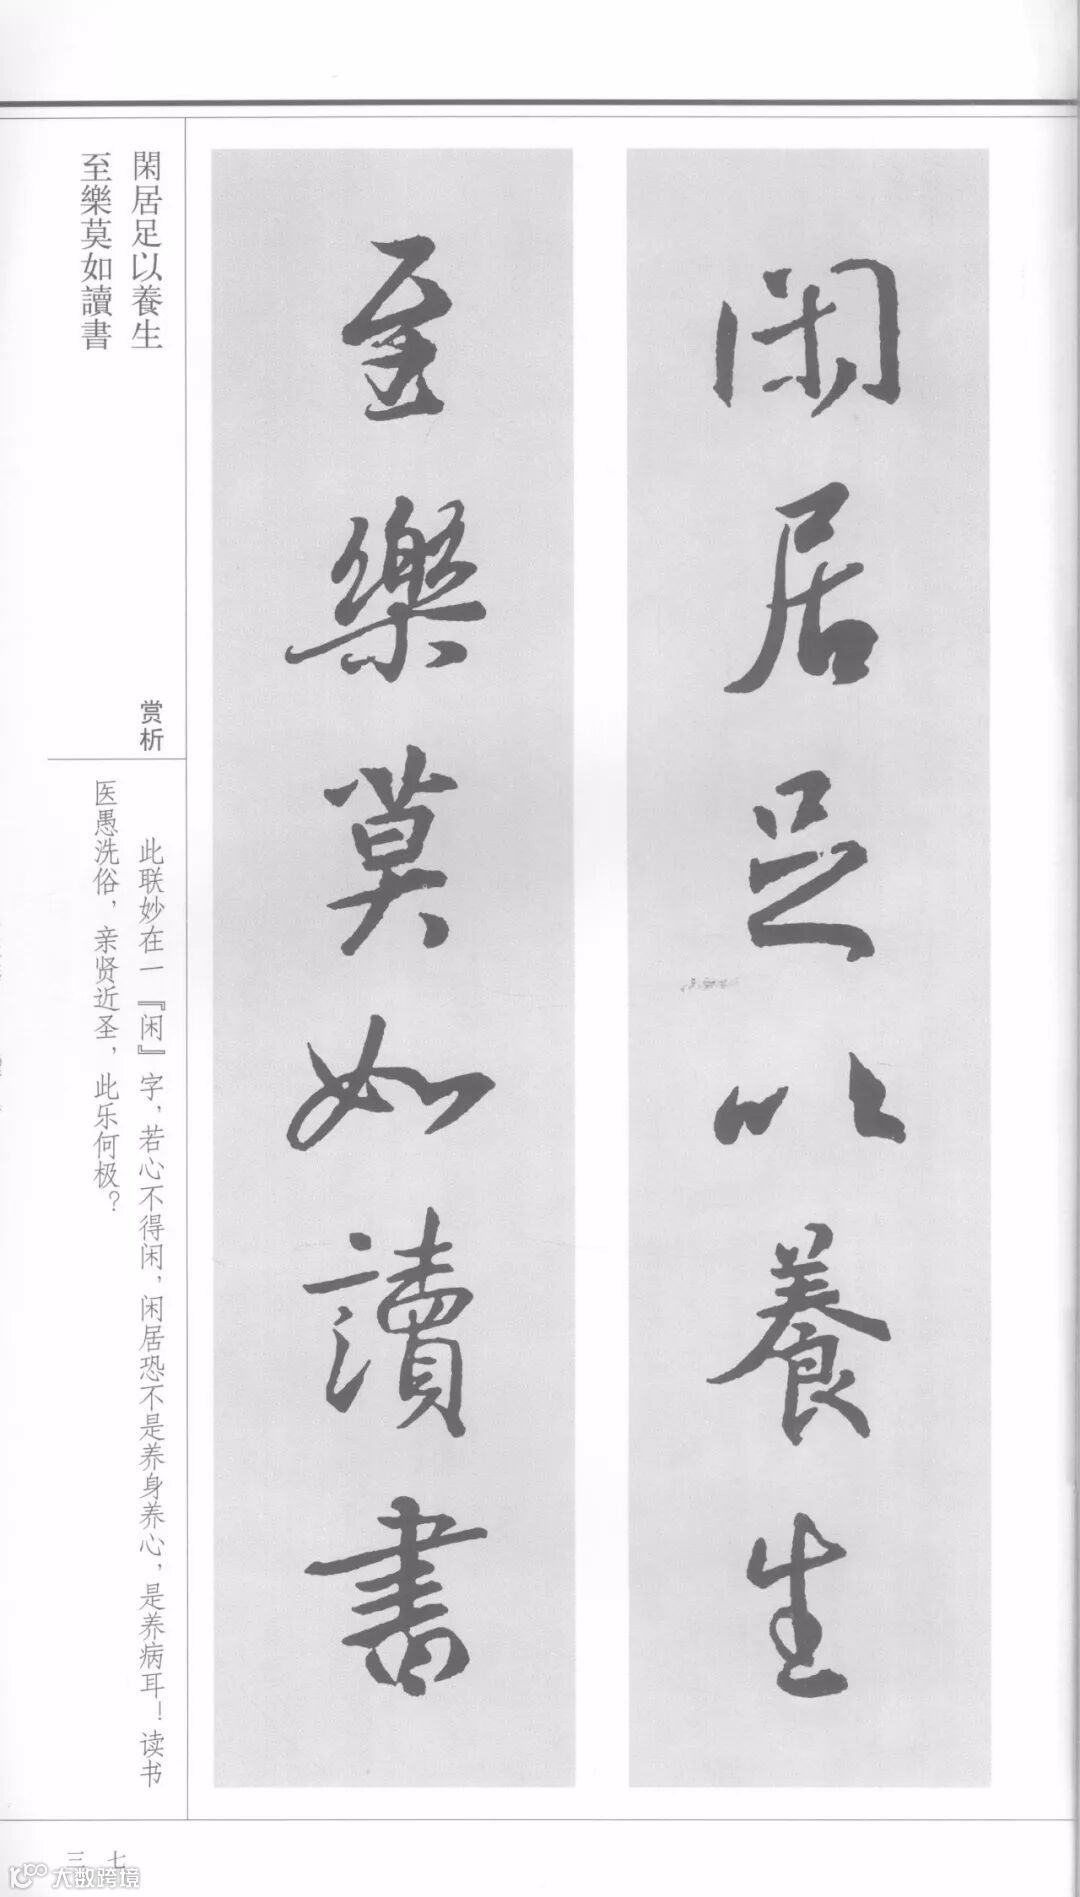 閑居足以養生
至樂莫如讀書
閑居足以養生
至樂莫如讀書
赏析
此联妙在一『闲』字，若心不得闲，闲居恐不是养身养心，是养病耳！读书
医愚洗俗，亲贤近圣，此乐何极？
三七
大数跨境